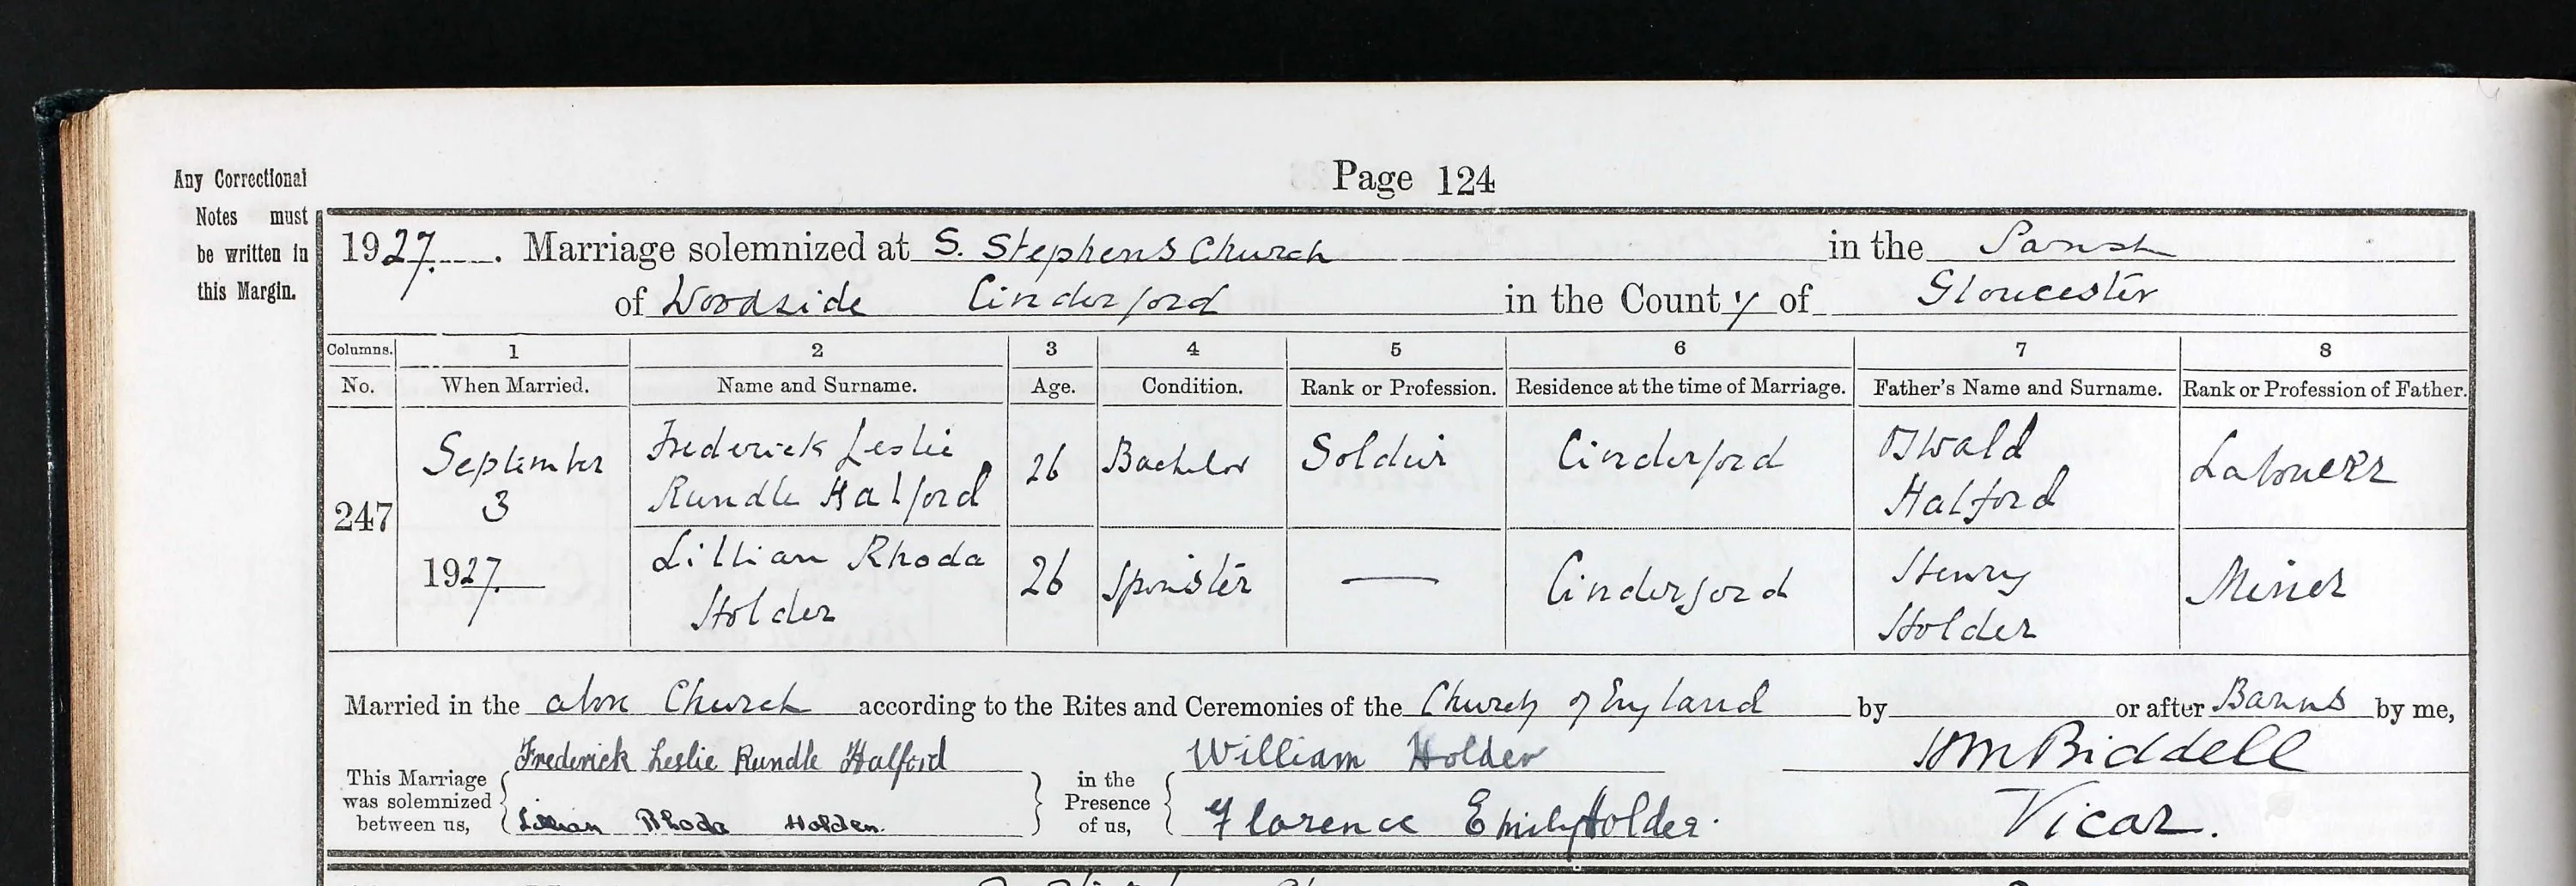 Page 124
Any Correctional
Notes must
be written in
this Margin.
1927. Marriage solemnized at S. Stephens Church in the Parish
of Woodside Cinderford in the County of Gloucester
Columns. 1 2 3 4 5 6 7 8
No. When Married. Name and Surname. Age. Condition. Rank or Profession. Residence at the time of Marriage. Father's Name and Surname. Rank or Profession of Father.
247
September
3
1927.
Frederick Leslie
Rundle Halford
26 Bachelor Soldier Cinderford
Oswald
Halford
Labourer
Lillian Rhoda
Holder
26 Spinster — Cinderford
Henry
Holder
Miner
Married in the above Church according to the Rites and Ceremonies of the Church of England by or after Banns by me,
This Marriage
was solemnized
between us,
Frederick Leslie Rundle Halford
Lillian Rhoda Holder.
in the
Presence
of us,
William Holder
Florence Emily Holder.
Biddell
Vicar.